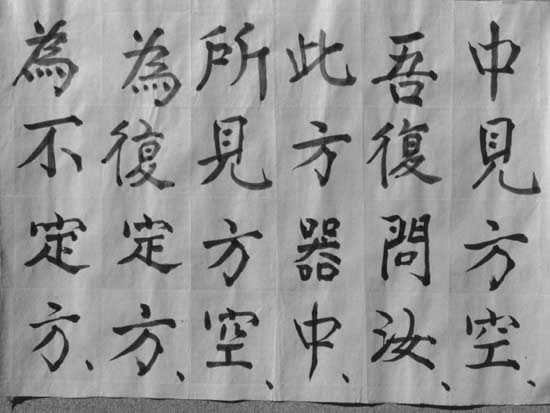 中見方空、
吾復問汝、
此方器中、
所見方空、
為復定方、
為不定方、